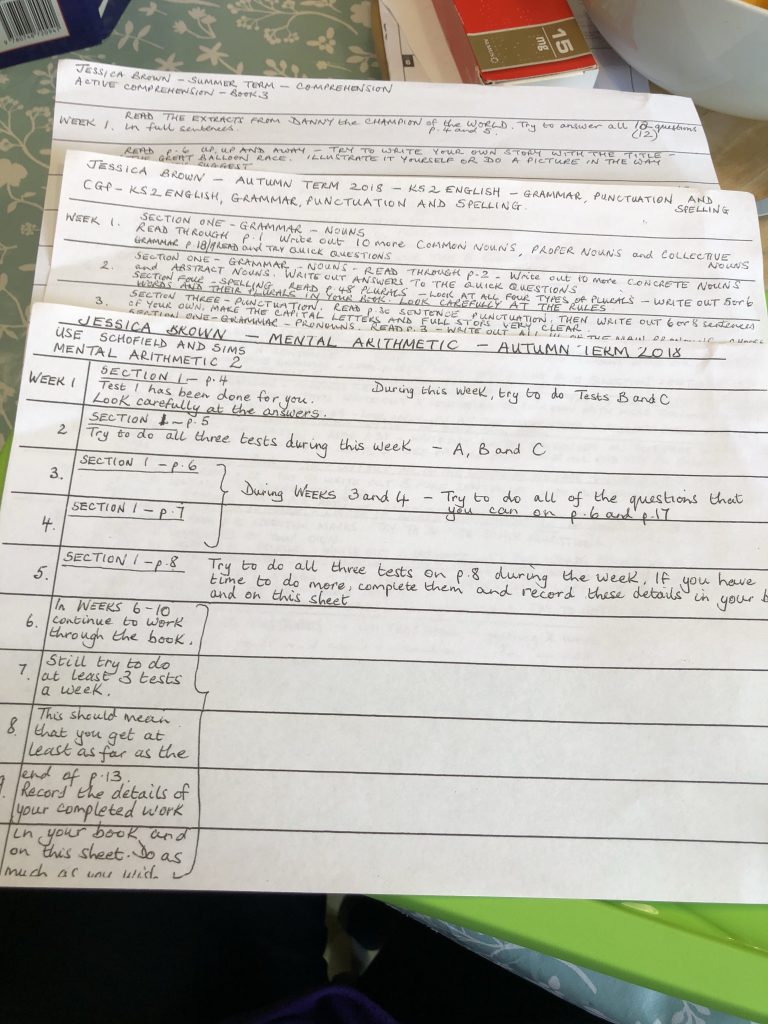 15
mg
JESSICA BROWN - SUMMER TERM - COMPREHENSION
ACTIVE COMPREHENSION - BOOK 3
WEEK 1. READ THE EXTRACTS FROM DANNY the CHAMPION of the WORLD. Try to answer all 10 questions
in full sentences. p. 4 and 5. (12)
READ p. 6 UP, UP AND AWAY - TRY TO WRITE YOUR OWN STORY WITH THE TITLE -
THE GREAT BALLOON RACE. ILLUSTRATE IT YOURSELF OR DO A PICTURE IN THE WAY
SUGGEST
JESSICA BROWN - AUTUMN TERM 2018 - KS2 ENGLISH - GRAMMAR, PUNCTUATION AND
SPELLING
CGP - KS2 ENGLISH, GRAMMAR, PUNCTUATION AND SPELLING.
WEEK 1. SECTION ONE - GRAMMAR - NOUNS
READ THROUGH p. 1 Write out 10 more COMMON NOUNS, PROPER NOUNS and COLLECTIVE
NOUNS
GRAMMAR p. 18/19 READ and TRY QUICK QUESTIONS
2. SECTION ONE - GRAMMAR - NOUNS - READ THROUGH p. 2 - Write out 10 more CONCRETE NOUNS
and ABSTRACT NOUNS. WRITE OUT ANSWERS TO THE QUICK QUESTIONS
SECTION FOUR - SPELLING. READ p. 48 PLURALS - LOOK AT ALL FOUR TYPES of PLURALS - WRITE OUT 5 or 6
WORDS AND THEIR PLURALS IN YOUR BOOK. LOOK CAREFULLY AT THE RULES
3. SECTION THREE - PUNCTUATION. READ p. 30 SENTENCE PUNCTUATION. THEN WRITE OUT 6 or 8 sentences
OF YOUR OWN. MAKE THE CAPITAL LETTERS AND FULL STOPS VERY CLEAR.
SECTION ONE - GRAMMAR - PRONOUNS. READ p. 3 - WRITE OUT ALL OF THE MAIN
JESSICA BROWN MENTAL ARITHMETIC - AUTUMN TERM 2018
USE SCHOFIELD AND SIMS
MENTAL ARITHMETIC 2
WEEK 1 SECTION 1 - p. 4
Test 1 has been done for you. During this week, try to do Tests B and C
Look carefully at the answers.
2 SECTION 1 - p. 5
Try to do all three tests during this week - A, B and C
3. SECTION 1 - p. 6
During WEEKS 3 and 4 - Try to do all of the questions that
you can on p. 6 and p. 17
4. SECTION 1 - p. 7
5. SECTION 1 - p. 8 Try to do all three tests on p. 8 during the week. If you have
time to do more, complete them and record these details in your b
and on this sheet
6. In WEEKS 6-10
continue to work
through the book.
7. Still try to do
at least 3 tests
a week.
8. This should mean
that you get at
least as far as the
end of p. 13.
Record the details of
your completed work
in your book and
on this sheet. Do as
much as you wish